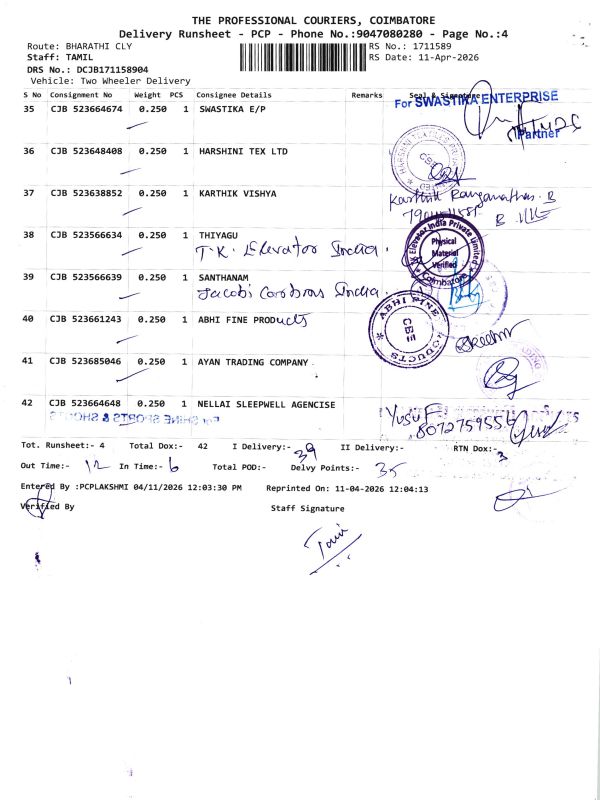 THE PROFESSIONAL COURIERS, COIMBATORE
Delivery Runsheet - PCP - Phone No.:9047080280 - Page No.:4
Route: BHARATHI CLY
RS No.: 1711589
Staff: TAMIL
RS Date: 11-Apr-2026
DRS No.: DCJB171158904
Vehicle: Two Wheeler Delivery
S No Consignment No Weight PCS Consignee Details Remarks Seal & Signature
For SWASTIKA ENTERPRISE
35 CJB 523664674 0.250 1 SWASTIKA E/P
Partner
36 CJB 523648408 0.250 1 HARSHINI TEX LTD
37 CJB 523638852 0.250 1 KARTHIK VISHYA
Karthik Ranganathan. B
38 CJB 523566634 0.250 1 THIYAGU
T.K. Elevator India.
Elevator India Private Limited
Physical
Material
Verified
Coimbatore
39 CJB 523566639 0.250 1 SANTHANAM
Jacobi Carbons India.
40 CJB 523661243 0.250 1 ABHI FINE PRODucts
ABHI FINE PRODUCTS
CBE
41 CJB 523685046 0.250 1 AYAN TRADING COMPANY
42 CJB 523664648 0.250 1 NELLAI SLEEPWELL AGENCISE
Yusuf
8072759556
For SHINE SPORTS & SHOES
Tot. Runsheet:- 4 Total Dox:- 42 I Delivery:- 39 II Delivery:- RTN Dox:- 3
Out Time:- 12 In Time:- 6 Total POD:- Delvy Points:- 35
Entered By :PCPLAKSHMI 04/11/2026 12:03:30 PM Reprinted On: 11-04-2026 12:04:13
Verified By Staff Signature